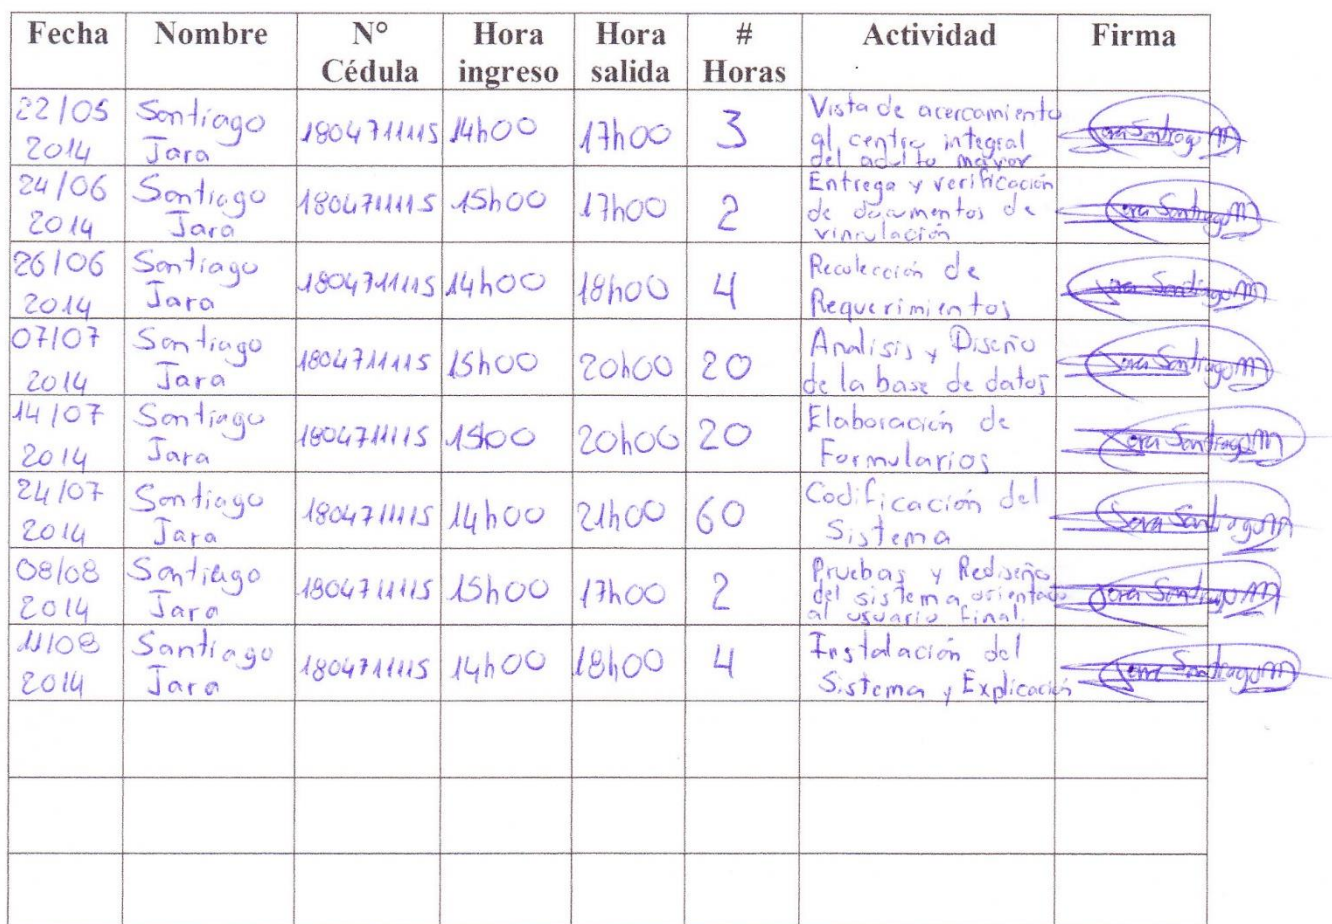 Fecha Nombre N° Cédula Hora ingreso Hora salida # Horas Actividad Firma
22/05 2014 Santiago Jara 1804711115 14h00 17h00 3 Vista de acercamiento al centro integral del adulto mayor Jara Santiago M
24/06 2014 Santiago Jara 1804711115 15h00 17h00 2 Entrega y verificación de documentos de vinculación Jara Santiago M
26/06 2014 Santiago Jara 1804711115 14h00 18h00 4 Recolección de Requerimientos Jara Santiago M
07/07 2014 Santiago Jara 1804711115 15h00 20h00 20 Analisis y Diseño de la base de datos Jara Santiago M
14/07 2014 Santiago Jara 1804711115 15h00 20h00 20 Elaboración de Formularios Jara Santiago M
24/07 2014 Santiago Jara 1804711115 14h00 21h00 60 Codificación del Sistema Jara Santiago M
08/08 2014 Santiago Jara 1804711115 15h00 17h00 2 Pruebas y Rediseño del sistema orientado al usuario final. Jara Santiago M
11/08 2014 Santiago Jara 1804711115 14h00 18h00 4 Instalación del Sistema y Explicación Jara Santiago M